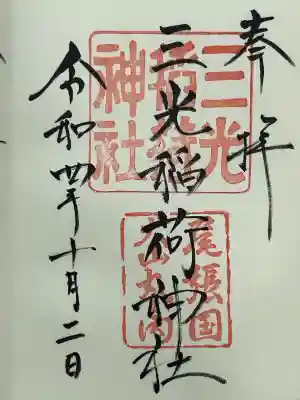 奉拝
三光稲荷神社
令和四年十月二日
三光
稲荷
神社
尾張国
犬山丸内